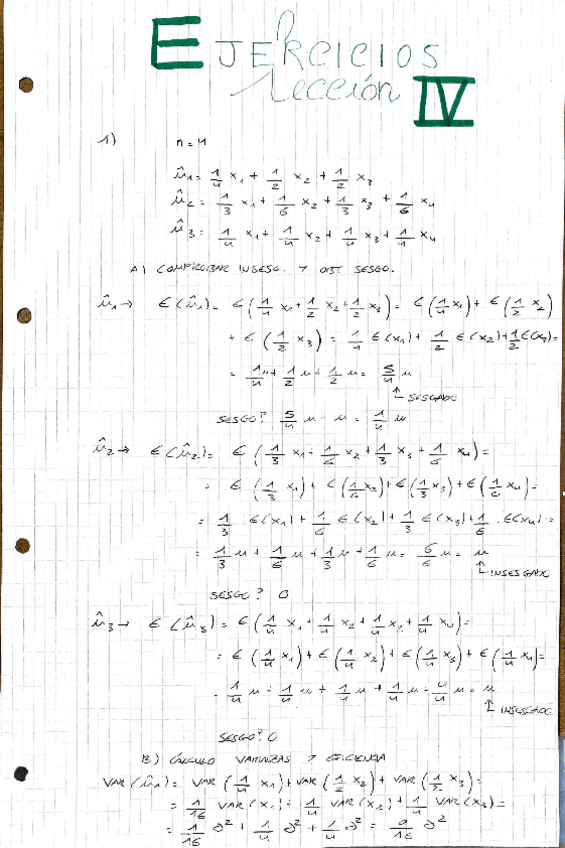 EJERCICIOS
Lección IV
1) n=4
û₁= 1/4 x₁ + 1/2 x₂ + 1/2 x₃
û₂= 1/3 x₁ + 1/6 x₂ + 1/3 x₃ + 1/6 x₄
û₃= 1/4 x₁ + 1/4 x₂ + 1/4 x₃ + 1/4 x₄
A) COMPROBAR INSESG. Y OBT SESGO.
û₁→ E(û₁)= E(1/4 x₁ + 1/2 x₂ + 1/2 x₃)= E(1/4 x₁) + E(1/2 x₂)
+ E(1/2 x₃) = 1/4 E(x₁) + 1/2 E(x₂) + 1/2 E(x₃)=
= 1/4 u + 1/2 u + 1/2 u = 5/4 u
↑ SESGADO
SESGO? 5/4 u - u = 1/4 u
û₂→ E(û₂)= E(1/3 x₁ + 1/6 x₂ + 1/3 x₃ + 1/6 x₄)=
= E(1/3 x₁) + E(1/6 x₂) + E(1/3 x₃) + E(1/6 x₄)=
= 1/3 · E(x₁) + 1/6 E(x₂) + 1/3 E(x₃) + 1/6 · E(x₄)=
= 1/3 u + 1/6 u + 1/3 u + 1/6 u = 6/6 u = u
↑ INSESGADO
SESGO? 0
û₃→ E(û₃)= E(1/4 x₁ + 1/4 x₂ + 1/4 x₃ + 1/4 x₄)=
= E(1/4 x₁) + E(1/4 x₂) + E(1/4 x₃) + E(1/4 x₄)=
= 1/4 u + 1/4 u + 1/4 u + 1/4 u = 4/4 u = u
↑ INSESGADO
SESGO? 0
B) CÁLCULO VARIANZAS Y EFICIENCIA
VAR(û₁)= VAR(1/4 x₁) + VAR(1/2 x₂) + VAR(1/2 x₃)=
= 1/16 VAR(x₁) + 1/4 VAR(x₂) + 1/4 VAR(x₃)=
= 1/16 ∂² + 1/4 ∂² + 1/4 ∂² = 9/16 ∂²